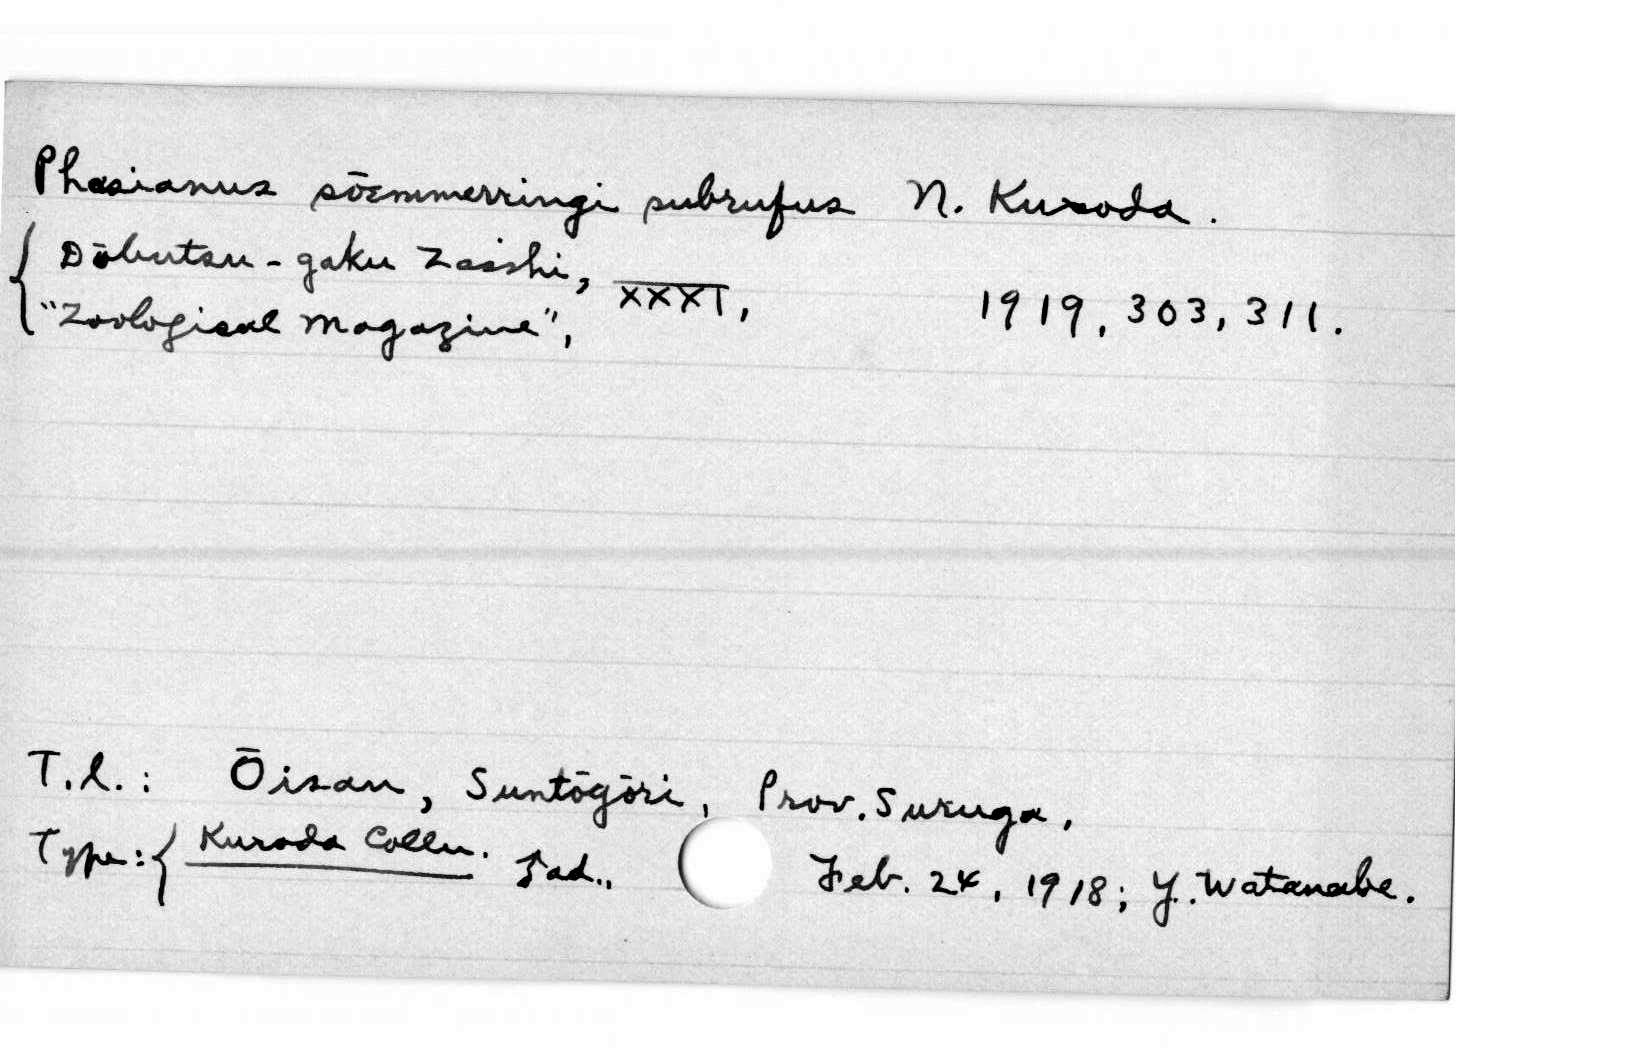 Phasianus sōemmerringi subrufus N. Kuroda.
Dōbutsu-gaku Zasshi,
"Zoological Magazine", XXXI, 1919, 303, 311.
T.l.: Ōisan, Suntōgōri, Prov. Suruga,
Type: Kuroda Colln. ad., Feb. 24, 1918; Y. Watanabe.